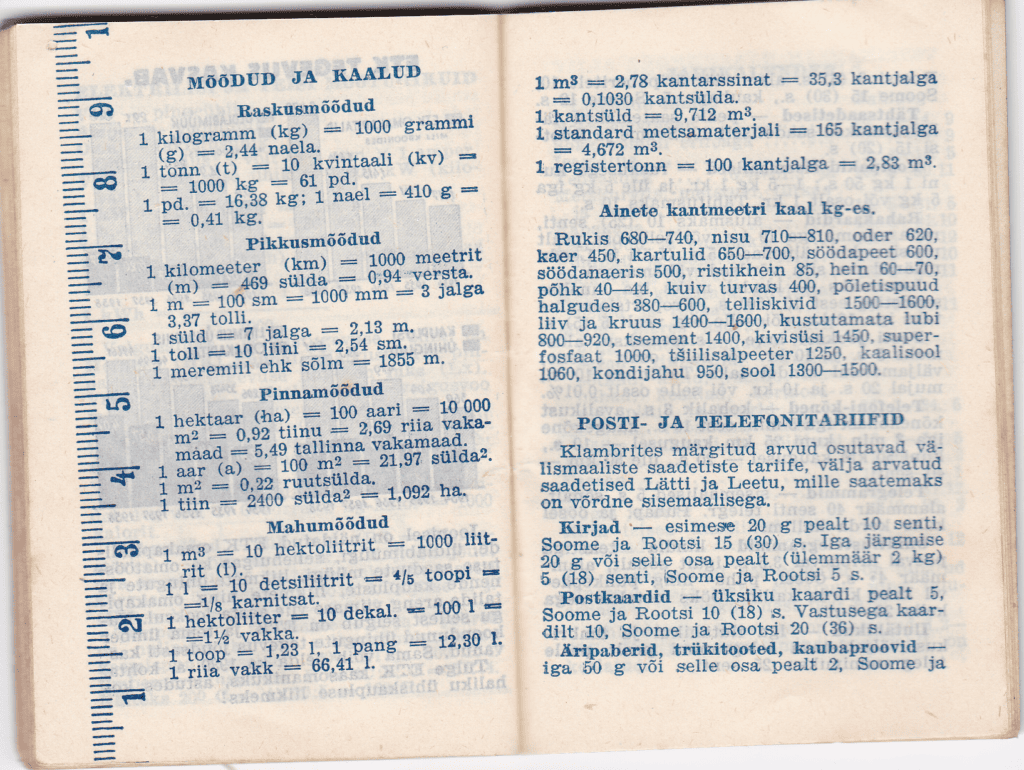 MÕÕDUD JA KAALUD
Raskusmõõdud
1 kilogramm (kg) = 1000 grammi
(g) = 2,44 naela.
1 tonn (t) = 10 kvintaali (kv) =
= 1000 kg = 61 pd.
1 pd. = 16,38 kg; 1 nael = 410 g =
= 0,41 kg.
Pikkusmõõdud
1 kilomeeter (km) = 1000 meetrit
(m) = 469 sülda = 0,94 versta.
1 m = 100 sm = 1000 mm = 3 jalga
3,37 tolli.
1 süld = 7 jalga = 2,13 m.
1 toll = 10 liini = 2,54 sm.
1 meremiil ehk sõlm = 1855 m.
Pinnamõõdud
1 hektaar (ha) = 100 aari = 10 000
m² = 0,92 tiinu = 2,69 riia vaka-
maad = 5,49 tallinna vakamaad.
1 aar (a) = 100 m² = 21,97 sülda².
1 m² = 0,22 ruutsülda.
1 tiin = 2400 sülda² = 1,092 ha.
Mahumõõdud
1 m³ = 10 hektoliitrit = 1000 liit-
rit (l).
1 l = 10 detsiliitrit = 4/5 toopi =
=1/8 karnitsat.
1 hektoliiter = 10 dekal. = 100 l =
=1½ vakka.
1 toop = 1,23 l, 1 pang = 12,30 l.
1 riia vakk = 66,41 l.
1 2 3 4 5 6 7 8 9 1
1 m³ = 2,78 kantarssinat = 35,3 kantjalga
= 0,1030 kantsülda.
1 kantsüld = 9,712 m³.
1 standard metsamaterjali = 165 kantjalga
= 4,672 m³.
1 registertonn = 100 kantjalga = 2,83 m³.
Ainete kantmeetri kaal kg-es.
Rukis 680—740, nisu 710—810, oder 620,
kaer 450, kartulid 650—700, söödapeet 600,
söödanaeris 500, ristikhein 85, hein 60—70,
põhk 40—44, kuiv turvas 400, põletispuud
halgudes 380—600, telliskivid 1500—1600,
liiv ja kruus 1400—1600, kustutamata lubi
800—920, tsement 1400, kivisüsi 1450, super-
fosfaat 1000, tšiilisalpeeter 1250, kaalisool
1060, kondijahu 950, sool 1300—1500.
POSTI- JA TELEFONITARIIFID
Klambrites märgitud arvud osutavad vä-
lismaaliste saadetiste tariife, välja arvatud
saadetised Lätti ja Leetu, mille saatemaks
on võrdne sisemaalisega.
Kirjad — esimese 20 g pealt 10 senti,
Soome ja Rootsi 15 (30) s. Iga järgmise
20 g või selle osa pealt (ülemmäär 2 kg)
5 (18) senti, Soome ja Rootsi 5 s.
Postkaardid — üksiku kaardi pealt 5,
Soome ja Rootsi 10 (18) s. Vastusega kaar-
dilt 10, Soome ja Rootsi 20 (36) s.
Äripaberid, trükitooted, kaubaproovid —
iga 50 g või selle osa pealt 2, Soome ja